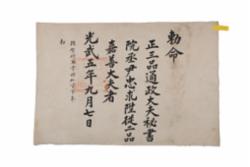 勅命
正三品通政大夫秘書
院丞尹忠求陞從二品
嘉善大夫者
光武五年九月七日